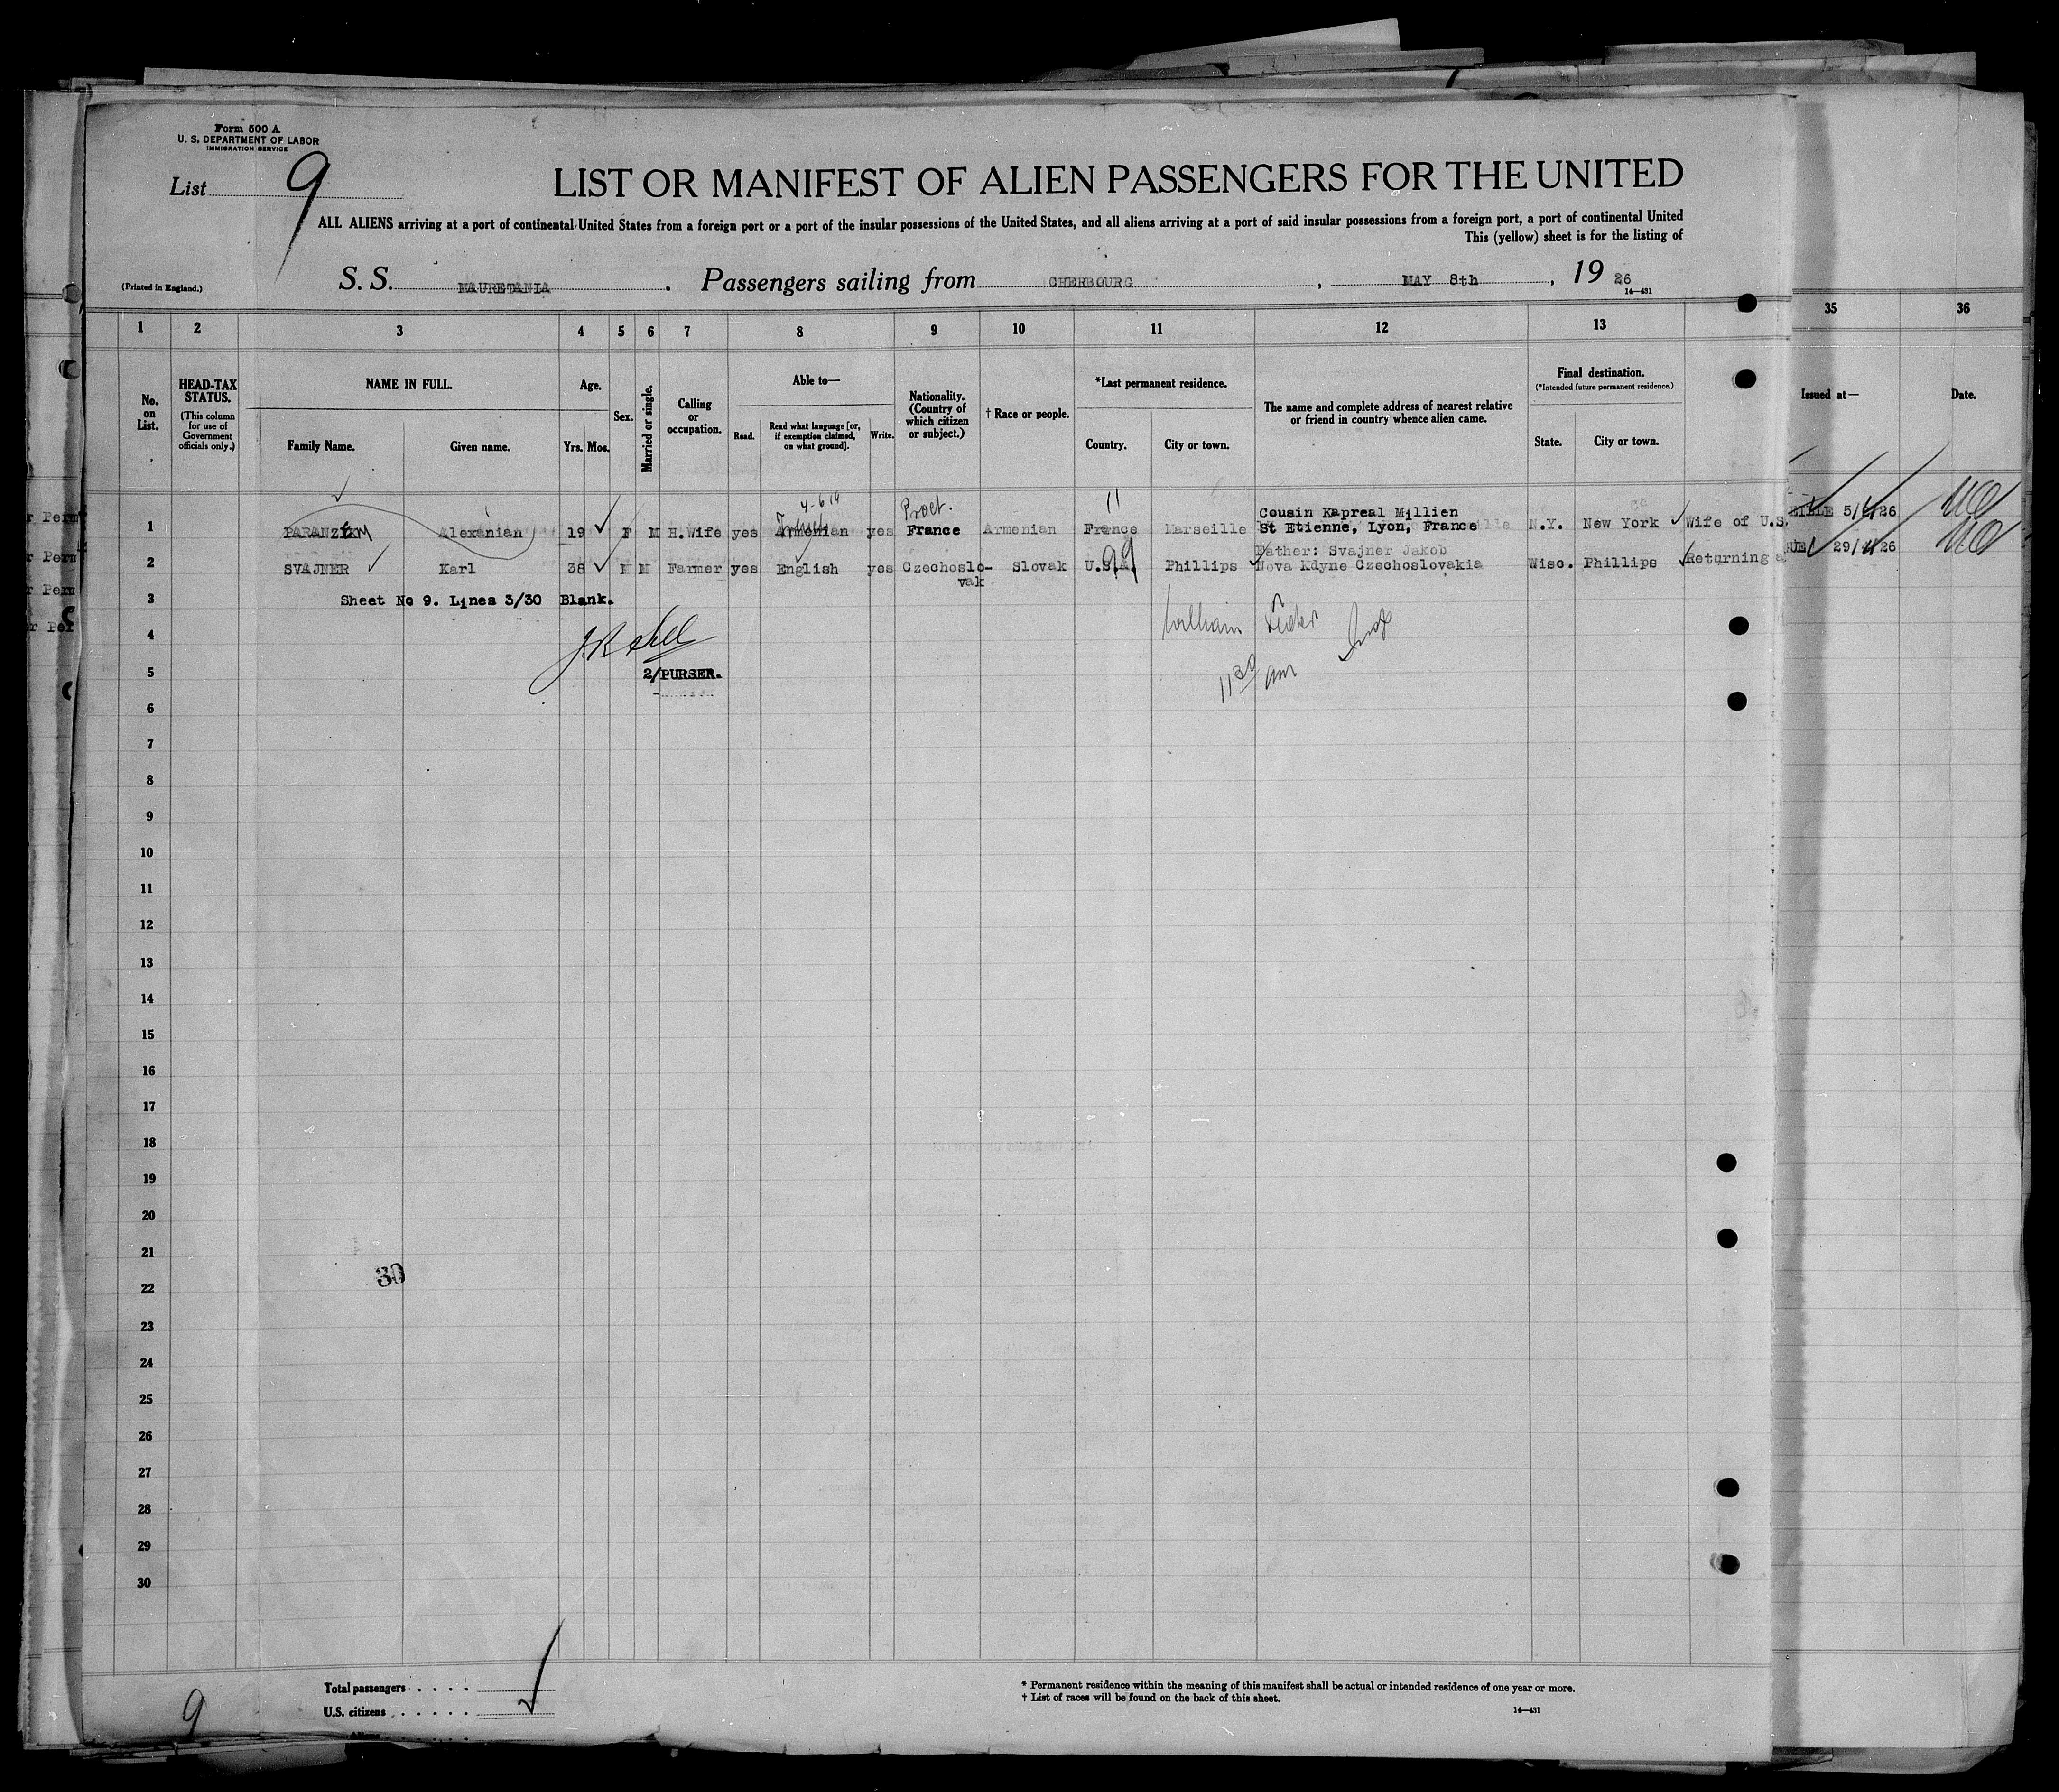 Form 500 A
U. S. DEPARTMENT OF LABOR
IMMIGRATION SERVICE
List 9
LIST OR MANIFEST OF ALIEN PASSENGERS FOR THE UNITED
ALL ALIENS arriving at a port of continental United States from a foreign port or a port of the insular possessions of the United States, and all aliens arriving at a port of said insular possessions from a foreign port, a port of continental United
This (yellow) sheet is for the listing of
(Printed in England.)
S. S. MAURETANIA . Passengers sailing from CHERBOURG , MAY 8th , 19 26
14—431
1 2 3 4 5 6 7 8 9 10 11 12 13 35 36
No. on List.
HEAD-TAX STATUS.
(This column for use of Government officials only.)
NAME IN FULL.
Family Name. Given name.
Age.
Yrs. Mos.
Sex.
Married or single.
Calling or occupation.
Able to—
Read. Read what language [or, if exemption claimed, on what ground]. Write.
Nationality. (Country of which citizen or subject.)
† Race or people.
*Last permanent residence.
Country. City or town.
The name and complete address of nearest relative or friend in country whence alien came.
Final destination.
(*Intended future permanent residence.)
State. City or town.
Issued at— Date.
4-6 Prot. 11
Cousin Kapreal Millien
1 PARANZEM Alexanian 19 F M H.Wife yes Armenian yes France Armenian France Marseille St Etienne, Lyon, France N.Y. New York Wife of U.S. 5/ 26
99 Father: Svajner Jakob
2 SVAJNER Karl 38 M M Farmer yes English yes Czechoslo- Slovak U.S.A. Phillips Nova Kdyne Czechoslovakia Wisc. Phillips Returning 29/ 26
vak
3 Sheet No 9. Lines 3/30 Blank.
4 William
5 2/PURSER. 11 30 am
6
7
8
9
10
11
12
13
14
15
16
17
18
19
20
21
30
22
23
24
25
26
27
28
29
30
Total passengers . . . .
U.S. citizens . . . . . .
9
* Permanent residence within the meaning of this manifest shall be actual or intended residence of one year or more.
† List of races will be found on the back of this sheet.
14—431